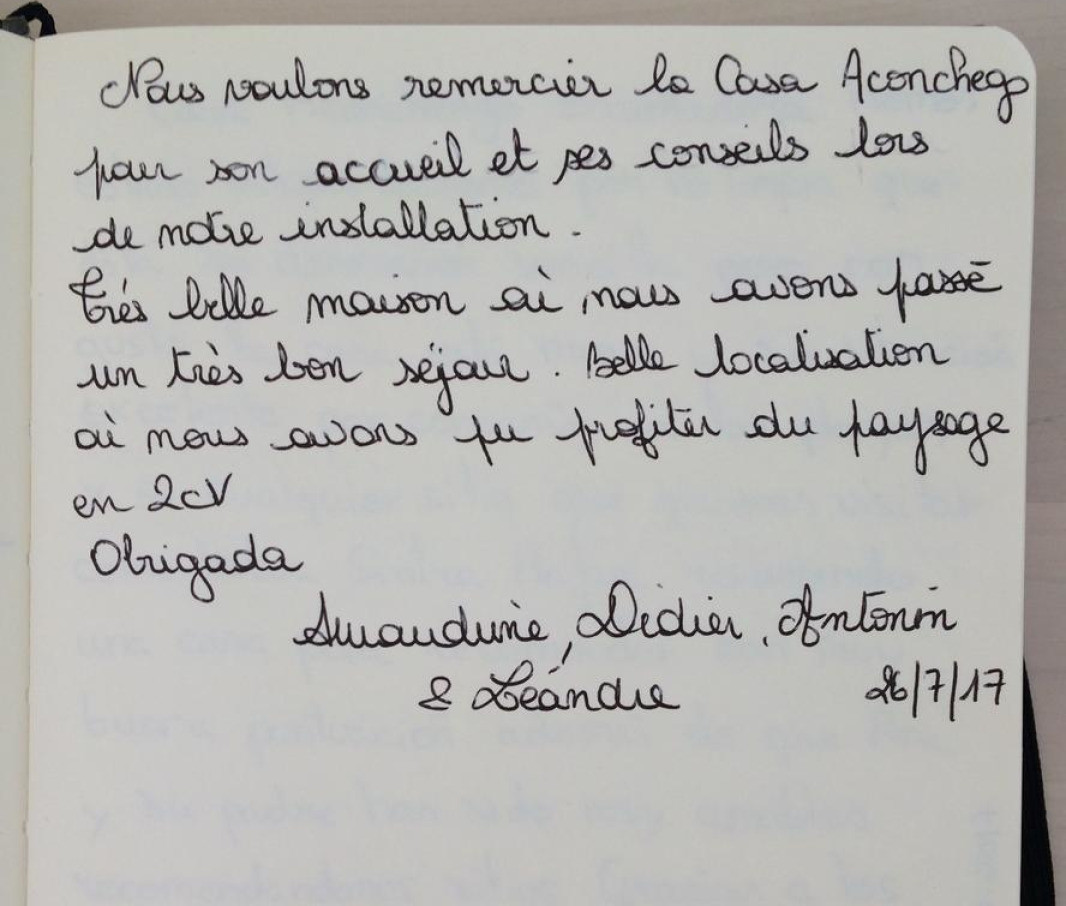 Nous voulons remercier la Casa Aconchego
pour son accueil et ses conseils lors
de notre installation.
Très belle maison où nous avons passé
un très bon séjour. Belle localisation
où nous avons pu profiter du paysage
en 2cV
Obrigada
Didier, Antonin
& Léandre 26/7/17